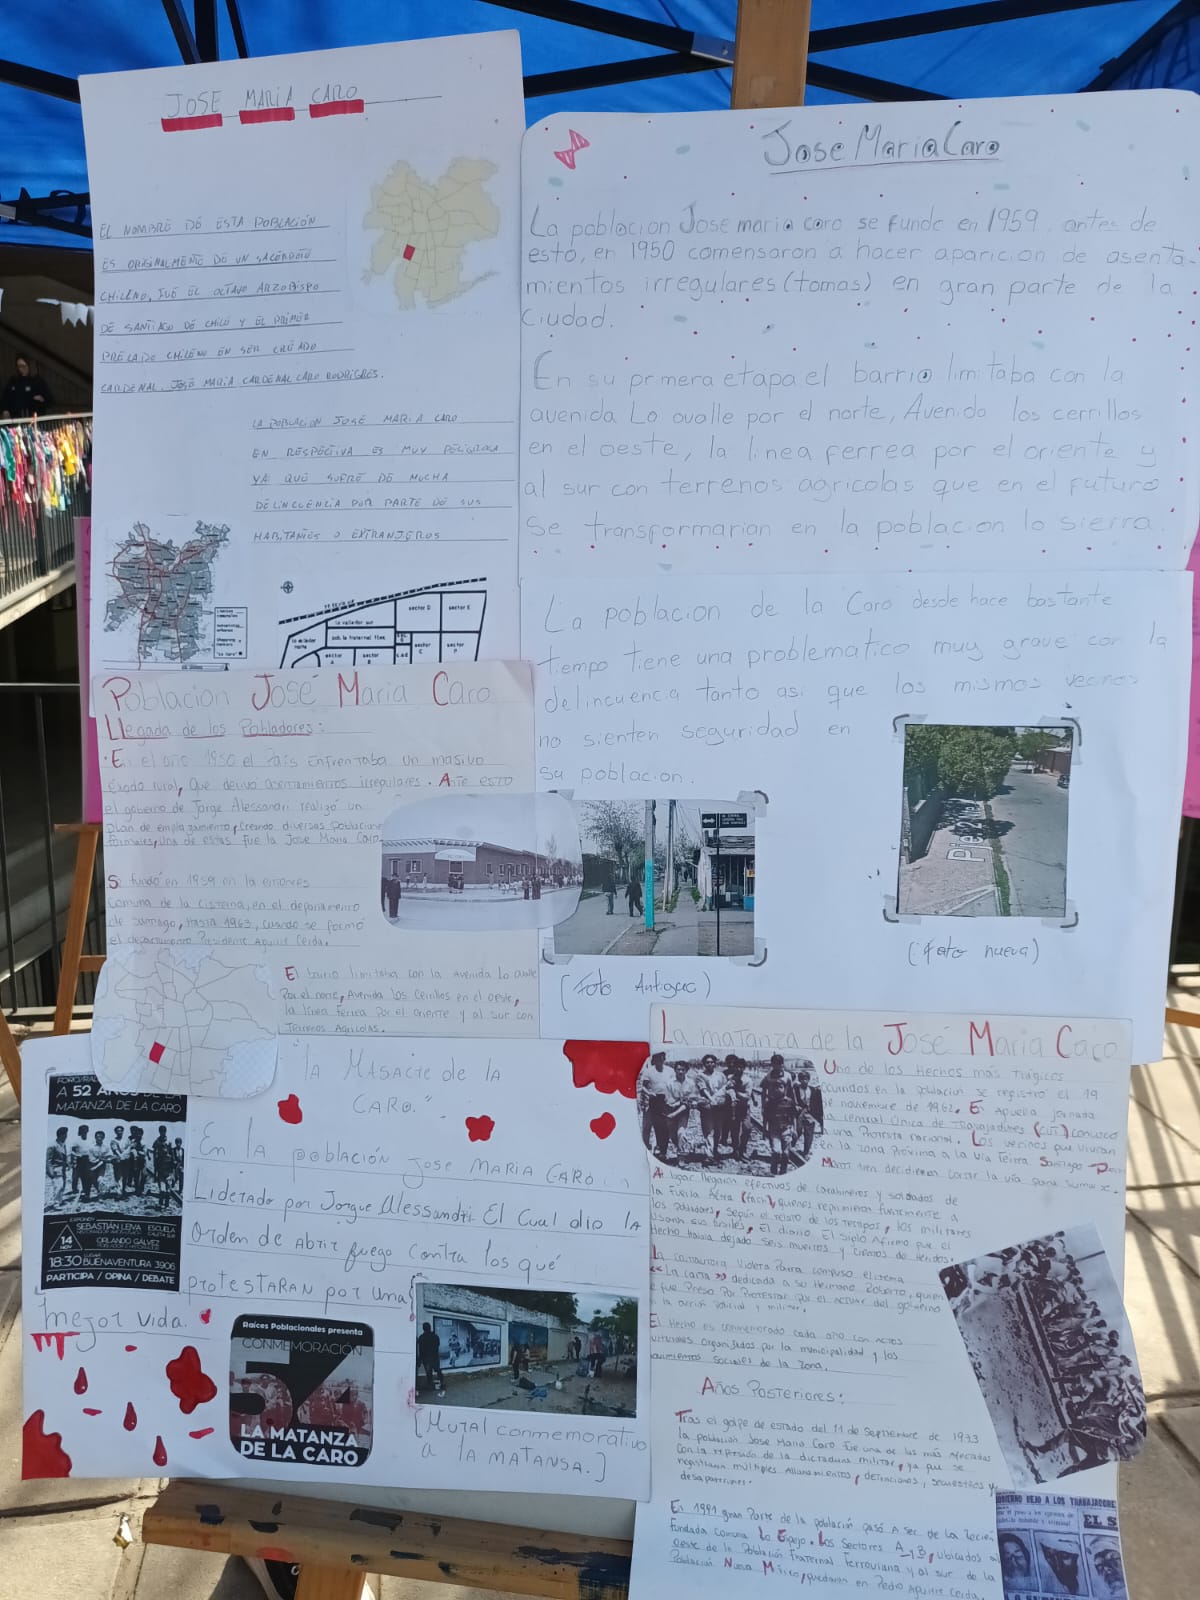 JOSE MARIA CARO
EL NOMBRE DE ESTA POBLACIÓN
ES ORIGINALMENTE DE UN SACERDOTE
CHILENO, FUE EL OCTAVO ARZOBISPO
DE SANTIAGO DE CHILE Y EL PRIMER
PRELADO CHILENO EN SER CREADO
CARDENAL. JOSÉ MARIA CARDENAL CARO RODRIGRES.
LA POBLACION JOSE MARIA CARO
EN RESPECTIVA ES MUY PELIGROSA
YA QUE SUFRE DE MUCHA
DELINCUENCIA POR PARTE DE SUS
HABITANTES O EXTRANJEROS
sector D
sector E
lo valledor sur
pob. la fraternal ffee.
lo valledor norte
sector A
sector B
sector C
sector F
Jose Maria Caro
La poblacion Jose maria caro se fundo en 1959, antes de
esto, en 1950 comensaron a hacer aparicion de asenta-
mientos irregulares (tomas) en gran parte de la
Ciudad.
En su primera etapa el barrio limitaba con la
avenida Lo ovalle por el norte, Avenida los cerrillos
en el oeste, la linea ferrea por el oriente y
al sur con terrenos agricolas que en el futuro
se transformarian en la poblacion lo sierra.
La poblacion de la Caro desde hace bastante
tiempo tiene una problematica muy grave con la
delincuencia tanto asi que los mismos vecinos
no sienten seguridad en
su poblacion.
(Foto Antigua)
(Foto nueva)
Poblacion José Maria Caro
Llegada de los Pobladores:
• En el año 1950 el País enfrentaba un masivo
éxodo rural, que derivó asentamientos irregulares. Ante esto
el gobierno de Jorge Alessandri realizó un
plan de emplazamiento, creando diversas poblaciones
formales, una de estas fue la Jose Maria Caro.
Se fundó en 1959 en la entonces
Comuna de la Cisterna, en el departamento
de Santiago, hasta 1963, cuando se formó
el departamento Presidente Aguirre Cerda.
El barrio limitaba con la Avenida Lo ovalle
Por el norte, Avenida los Cerrillos en el oeste,
la línea Ferrea por el oriente y al sur con
Terrenos Agricolas.
"La Masacre de la
CARO."
En la población Jose MARIA CARO
Liderado por Jorgue Alessandri El Cual dio la
Orden de Abrir fuego contra los que
protestaran por una
mejor vida.
A 52 AÑOS DE LA
MATANZA DE LA CARO
SEBASTIÁN LEIVA
ORLANDO GÁLVEZ
ESCUELA
14
NOV
18:30 BUENAVENTURA 3906
PARTICIPA / OPINA / DEBATE
Raíces Poblacionales presenta
CONMEMORACIÓN
54
LA MATANZA
DE LA CARO
[Mural conmemorativo
a la MATANSA.]
La matanza de la José Maria Caro
Uno de los Hechos más Trágicos
ocurridos en la población se registró el 19
de noviembre de 1962. En Aquella jornada
la central Única de Trabajadores (CUT) convocó
a una Protesta nacional. Los vecinos que vivían
en la zona próxima a la vía Férrea Santiago
decidieron cortar la vía para sumarse.
Al lugar llegaron efectivos de carabineros y soldados de
la fuerza Aérea (FACH), quienes reprimieron fuertemente a
los pobladores, según el relato de los testigos, los militares
usaron sus fusiles, El diario El siglo Afirmó que el
hecho había dejado seis muertos y cientos de heridos.
La cantautora Violeta Parra compuso el tema
«La carta» dedicada a su Hermano Roberto, quien
fue Preso Por Protestar por el actuar del gobierno
la acción policial y militar.
El Hecho es conmemorado cada año con Actos
culturales organizados por la municipalidad y los
movimientos sociales de la zona.
Años Posteriores:
Tras el golpe de estado del 11 de Septiembre de 1973
la población Jose Maria Caro Fue una de las más Afectadas
con la represión de la dictadura militar, ya que se
registraron múltiples Allanamientos, detenciones, secuestros y
desapariciones.
En 1991 gran Parte de la población pasó A ser de la recién
Fundada comuna Lo Espejo. Los Sectores A y B, ubicados al
oeste de la Población Fraternal Ferroviaria y al sur de la
Población Nueva México, quedaron en Pedro Aguirre Cerda.
DEJO A LOS TRABAJADORES
EL S